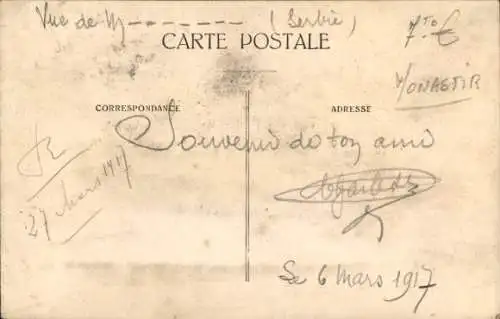 Vue de M - - - - - - - (Serbie)
7.50 €
CARTE POSTALE
MONASTIR
CORRESPONDANCE
ADRESSE
Souvenir de ton ami
27 Mars 1917
Le 6 Mars 1917